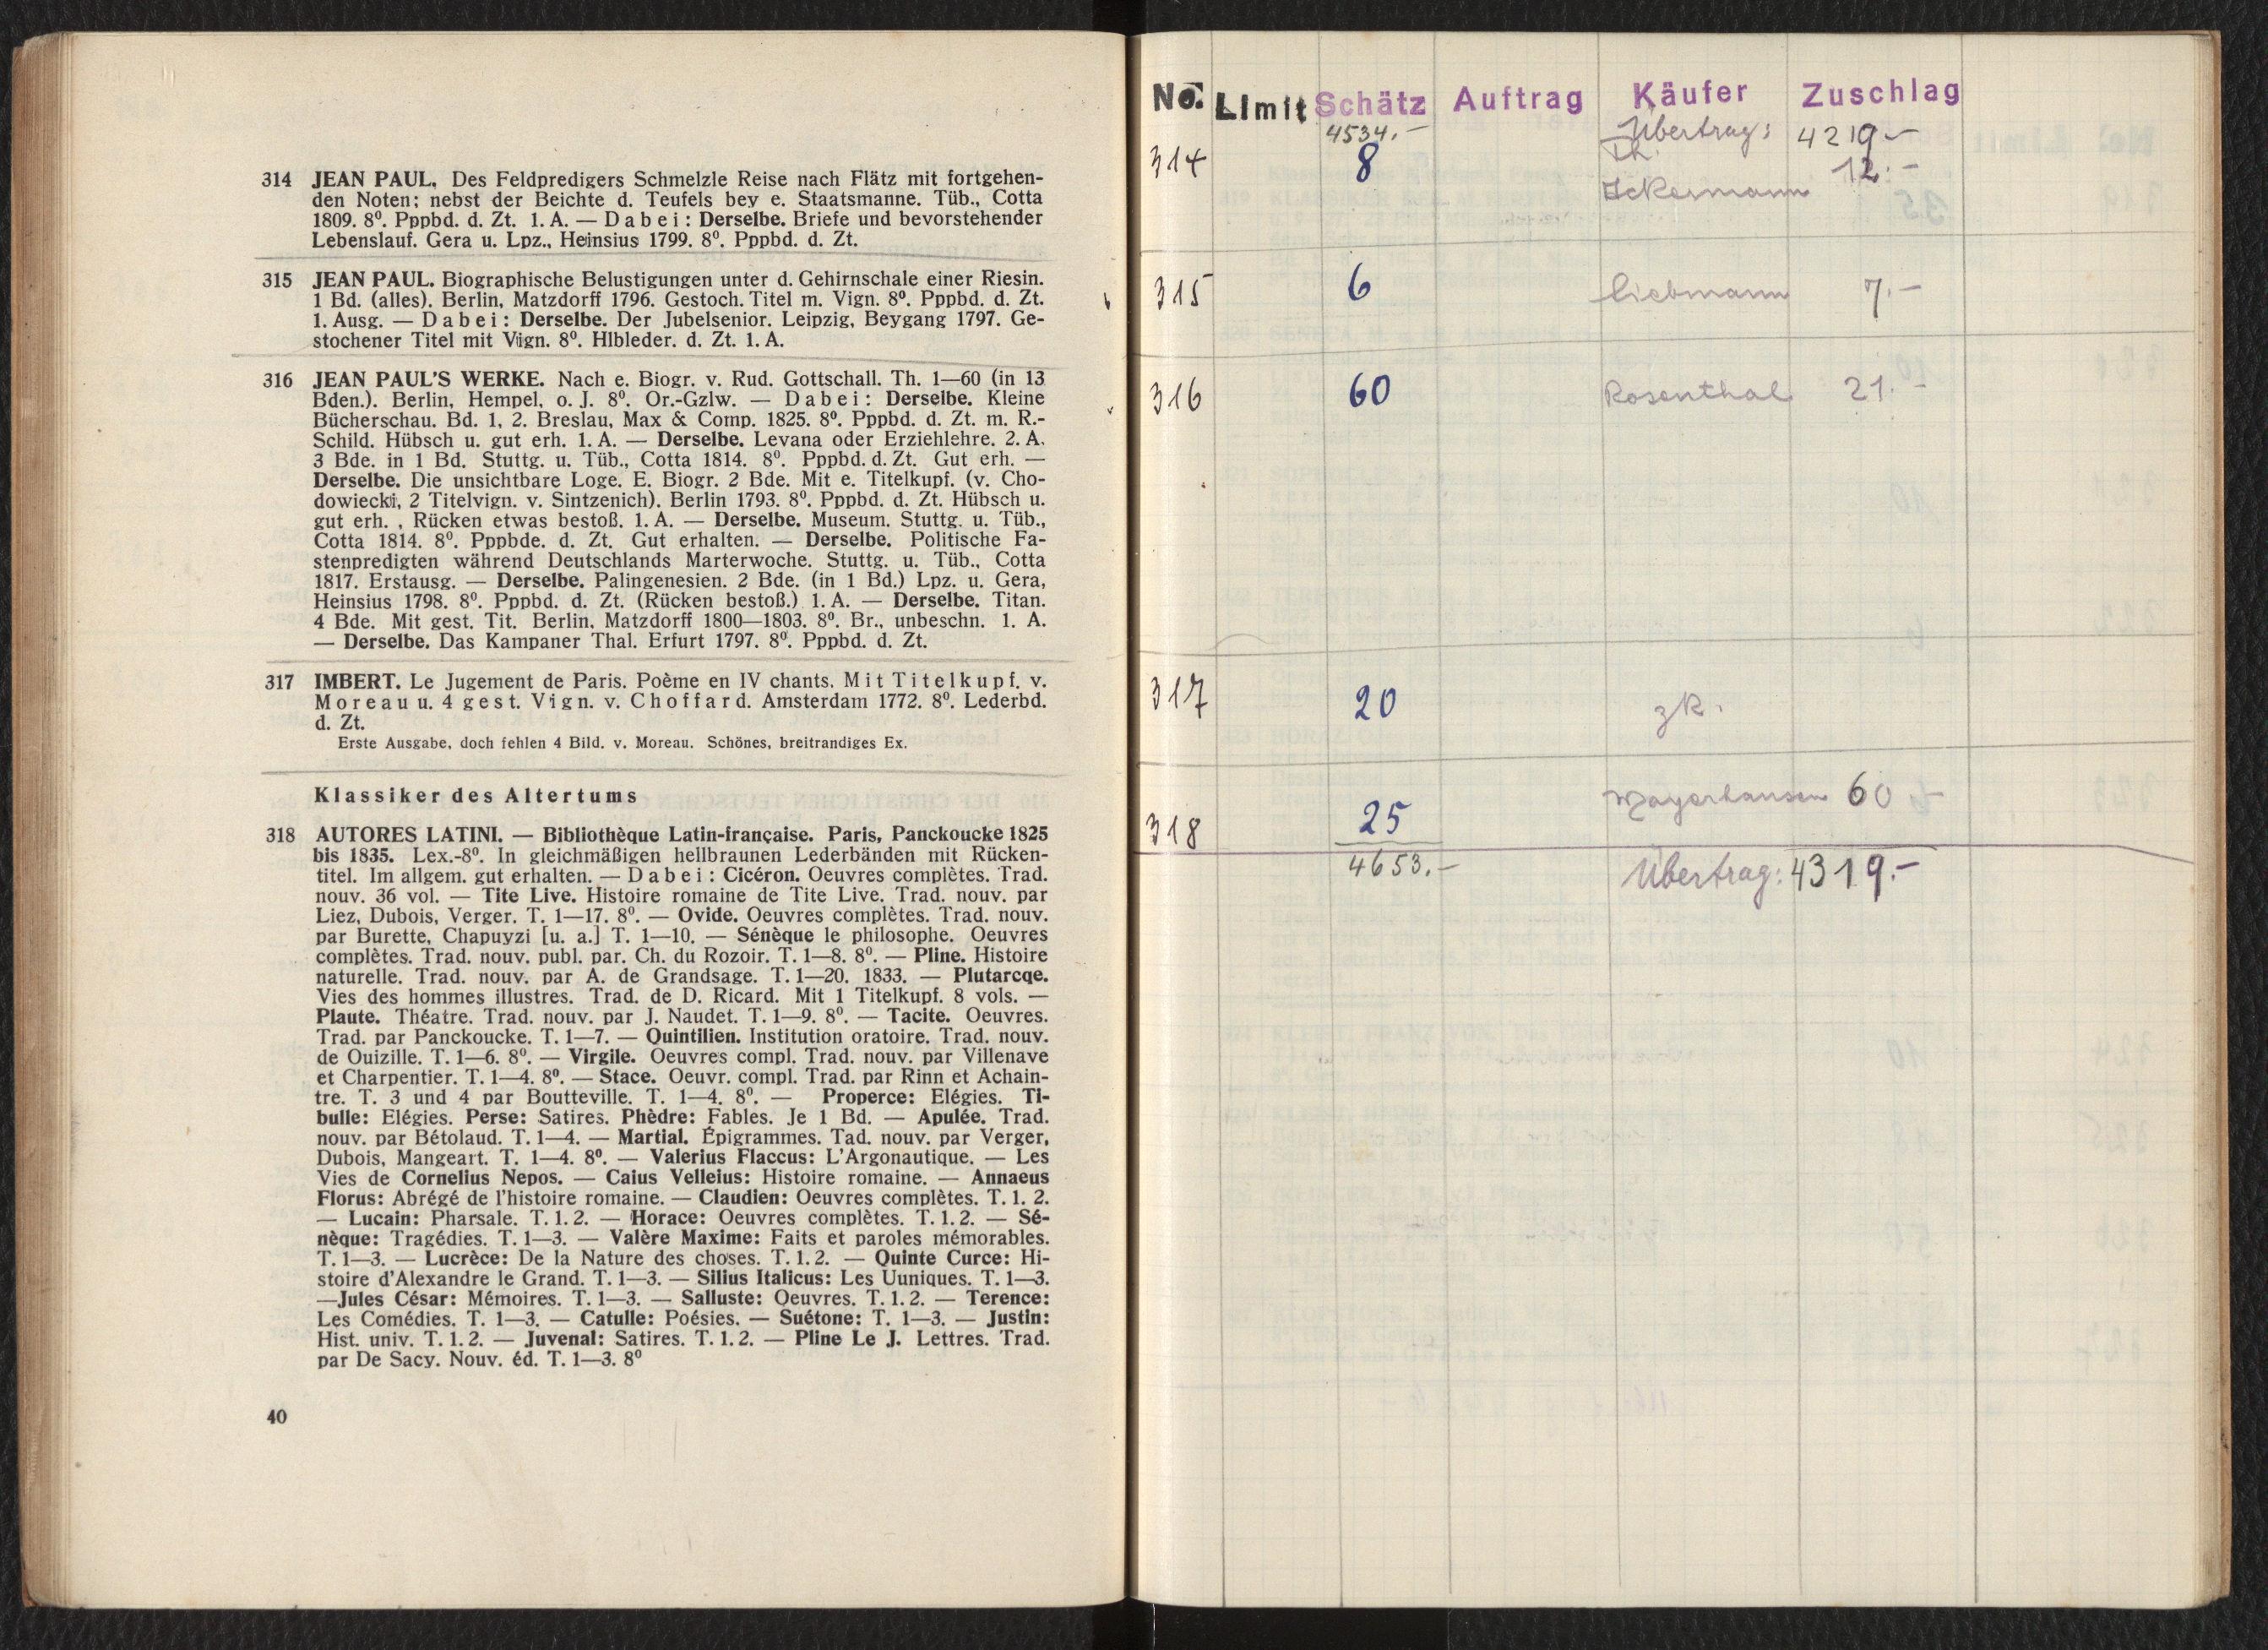 314 JEAN PAUL. Des Feldpredigers Schmelzle Reise nach Flätz mit fortgehen-
den Noten; nebst der Beichte d. Teufels bey e. Staatsmanne. Tüb., Cotta
1809. 8⁰. Pppbd. d. Zt. 1. A. — Dabei: Derselbe. Briefe und bevorstehender
Lebenslauf. Gera u. Lpz., Heinsius 1799. 8⁰. Pppbd. d. Zt.
315 JEAN PAUL. Biographische Belustigungen unter d. Gehirnschale einer Riesin.
1 Bd. (alles). Berlin, Matzdorff 1796. Gestoch. Titel m. Vign. 8⁰. Pppbd. d. Zt.
1. Ausg. — Dabei: Derselbe. Der Jubelsenior. Leipzig, Beygang 1797. Ge-
stochener Titel mit Vign. 8⁰. Hlbleder. d. Zt. 1. A.
316 JEAN PAUL'S WERKE. Nach e. Biogr. v. Rud. Gottschall. Th. 1—60 (in 13
Bden.). Berlin, Hempel, o. J. 8⁰. Or.-Gzlw. — Dabei: Derselbe. Kleine
Bücherschau. Bd. 1, 2. Breslau, Max & Comp. 1825. 8⁰. Pppbd. d. Zt. m. R.-
Schild. Hübsch u. gut erh. 1. A. — Derselbe. Levana oder Erziehlehre. 2. A.
3 Bde. in 1 Bd. Stuttg. u. Tüb., Cotta 1814. 8⁰. Pppbd. d. Zt. Gut erh. —
Derselbe. Die unsichtbare Loge. E. Biogr. 2 Bde. Mit e. Titelkupf. (v. Cho-
dowiecki, 2 Titelvign. v. Sintzenich). Berlin 1793. 8⁰. Pppbd. d. Zt. Hübsch u.
gut erh. , Rücken etwas bestoß. 1. A. — Derselbe. Museum. Stuttg. u. Tüb.,
Cotta 1814. 8⁰. Pppbde. d. Zt. Gut erhalten. — Derselbe. Politische Fa-
stenpredigten während Deutschlands Marterwoche. Stuttg. u. Tüb., Cotta
1817. Erstausg. — Derselbe. Palingenesien. 2 Bde. (in 1 Bd.) Lpz. u. Gera,
Heinsius 1798. 8⁰. Pppbd. d. Zt. (Rücken bestoß.) 1. A. — Derselbe. Titan.
4 Bde. Mit gest. Tit. Berlin, Matzdorff 1800—1803. 8⁰. Br., unbeschn. 1. A.
— Derselbe. Das Kampaner Thal. Erfurt 1797. 8⁰. Pppbd. d. Zt.
317 IMBERT. Le Jugement de Paris. Poème en IV chants. Mit Titelkupf. v.
Moreau u. 4 gest. Vign. v. Choffard. Amsterdam 1772. 8⁰. Lederbd.
d. Zt.
Erste Ausgabe, doch fehlen 4 Bild. v. Moreau. Schönes, breitrandiges Ex.
Klassiker des Altertums
318 AUTORES LATINI. — Bibliothèque Latin-française. Paris, Panckoucke 1825
bis 1835. Lex.-8⁰. In gleichmäßigen hellbraunen Lederbänden mit Rücken-
titel. Im allgem. gut erhalten. — Dabei: Cicéron. Oeuvres complètes. Trad.
nouv. 36 vol. — Tite Live. Histoire romaine de Tite Live. Trad. nouv. par
Liez, Dubois, Verger. T. 1—17. 8⁰. — Ovide. Oeuvres complètes. Trad. nouv.
par Burette, Chapuyzi [u. a.] T. 1—10. — Sénèque le philosophe. Oeuvres
complètes. Trad. nouv. publ. par. Ch. du Rozoir. T. 1—8. 8⁰. — Pline. Histoire
naturelle. Trad. nouv. par A. de Grandsage. T. 1—20. 1833. — Plutarcqe.
Vies des hommes illustres. Trad. de D. Ricard. Mit 1 Titelkupf. 8 vols. —
Plaute. Théatre. Trad. nouv. par J. Naudet. T. 1—9. 8⁰. — Tacite. Oeuvres.
Trad. par Panckoucke. T. 1—7. — Quintilien. Institution oratoire. Trad. nouv.
de Ouizille. T. 1—6. 8⁰. — Virgile. Oeuvres compl. Trad. nouv. par Villenave
et Charpentier. T. 1—4. 8⁰. — Stace. Oeuvr. compl. Trad. par Rinn et Achain-
tre. T. 3 und 4 par Boutteville. T. 1—4. 8⁰. — Properce: Elégies. Ti-
bulle: Elégies. Perse: Satires. Phèdre: Fables. Je 1 Bd. — Apulée. Trad.
nouv. par Bétolaud. T. 1—4. — Martial. Épigrammes. Tad. nouv. par Verger,
Dubois, Mangeart. T. 1—4. 8⁰. — Valerius Flaccus: L'Argonautique. — Les
Vies de Cornelius Nepos. — Caius Velleius: Histoire romaine. — Annaeus
Florus: Abrégé de l'histoire romaine. — Claudien: Oeuvres complètes. T. 1. 2.
— Lucain: Pharsale. T. 1. 2. — Horace: Oeuvres complètes. T. 1. 2. — Sé-
nèque: Tragédies. T. 1—3. — Valère Maxime: Faits et paroles mémorables.
T. 1—3. — Lucrèce: De la Nature des choses. T. 1. 2. — Quinte Curce: Hi-
stoire d'Alexandre le Grand. T. 1—3. — Silius Italicus: Les Uuniques. T. 1—3.
—Jules César: Mémoires. T. 1—3. — Salluste: Oeuvres. T. 1. 2. — Terence:
Les Comédies. T. 1—3. — Catulle: Poésies. — Suétone: T. 1—3. — Justin:
Hist. univ. T. 1. 2. — Juvenal: Satires. T. 1. 2. — Pline Le J. Lettres. Trad.
par De Sacy. Nouv. éd. T. 1—3. 8⁰
40
No. Limit Schätz Auftrag Käufer Zuschlag
4534.- Übertrag: 4219.-
314 8 Th. Ackermann 12.-
315 6 Liebmann 7.-
316 60 Rosenthal 21.-
317 20 zk.
318 25 Mayerhausen 60.-
4653.- Übertrag: 4319.-